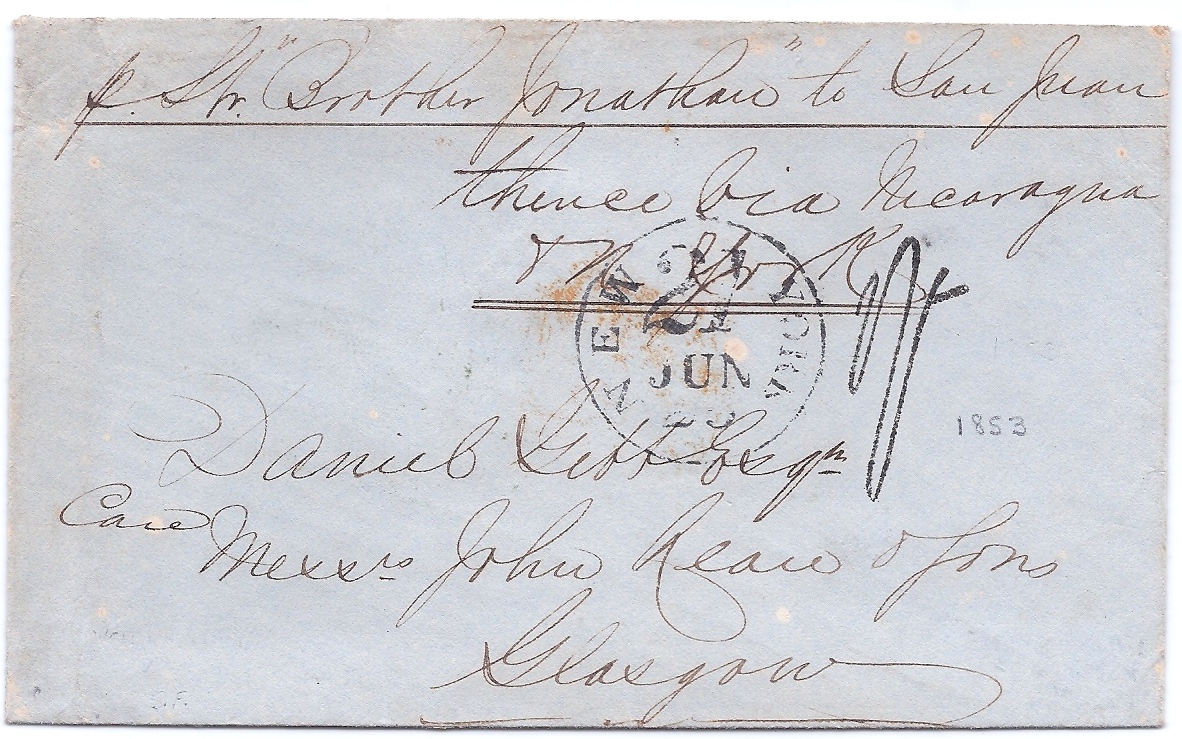 p. Str. "Brother Jonathan" to San Juan
thence via Nicaragua
& N. York
NEW YORK
JUN
1853
Daniel Gibb Esqr
Care
Messrs John & Sons
Glasgow
S.F.